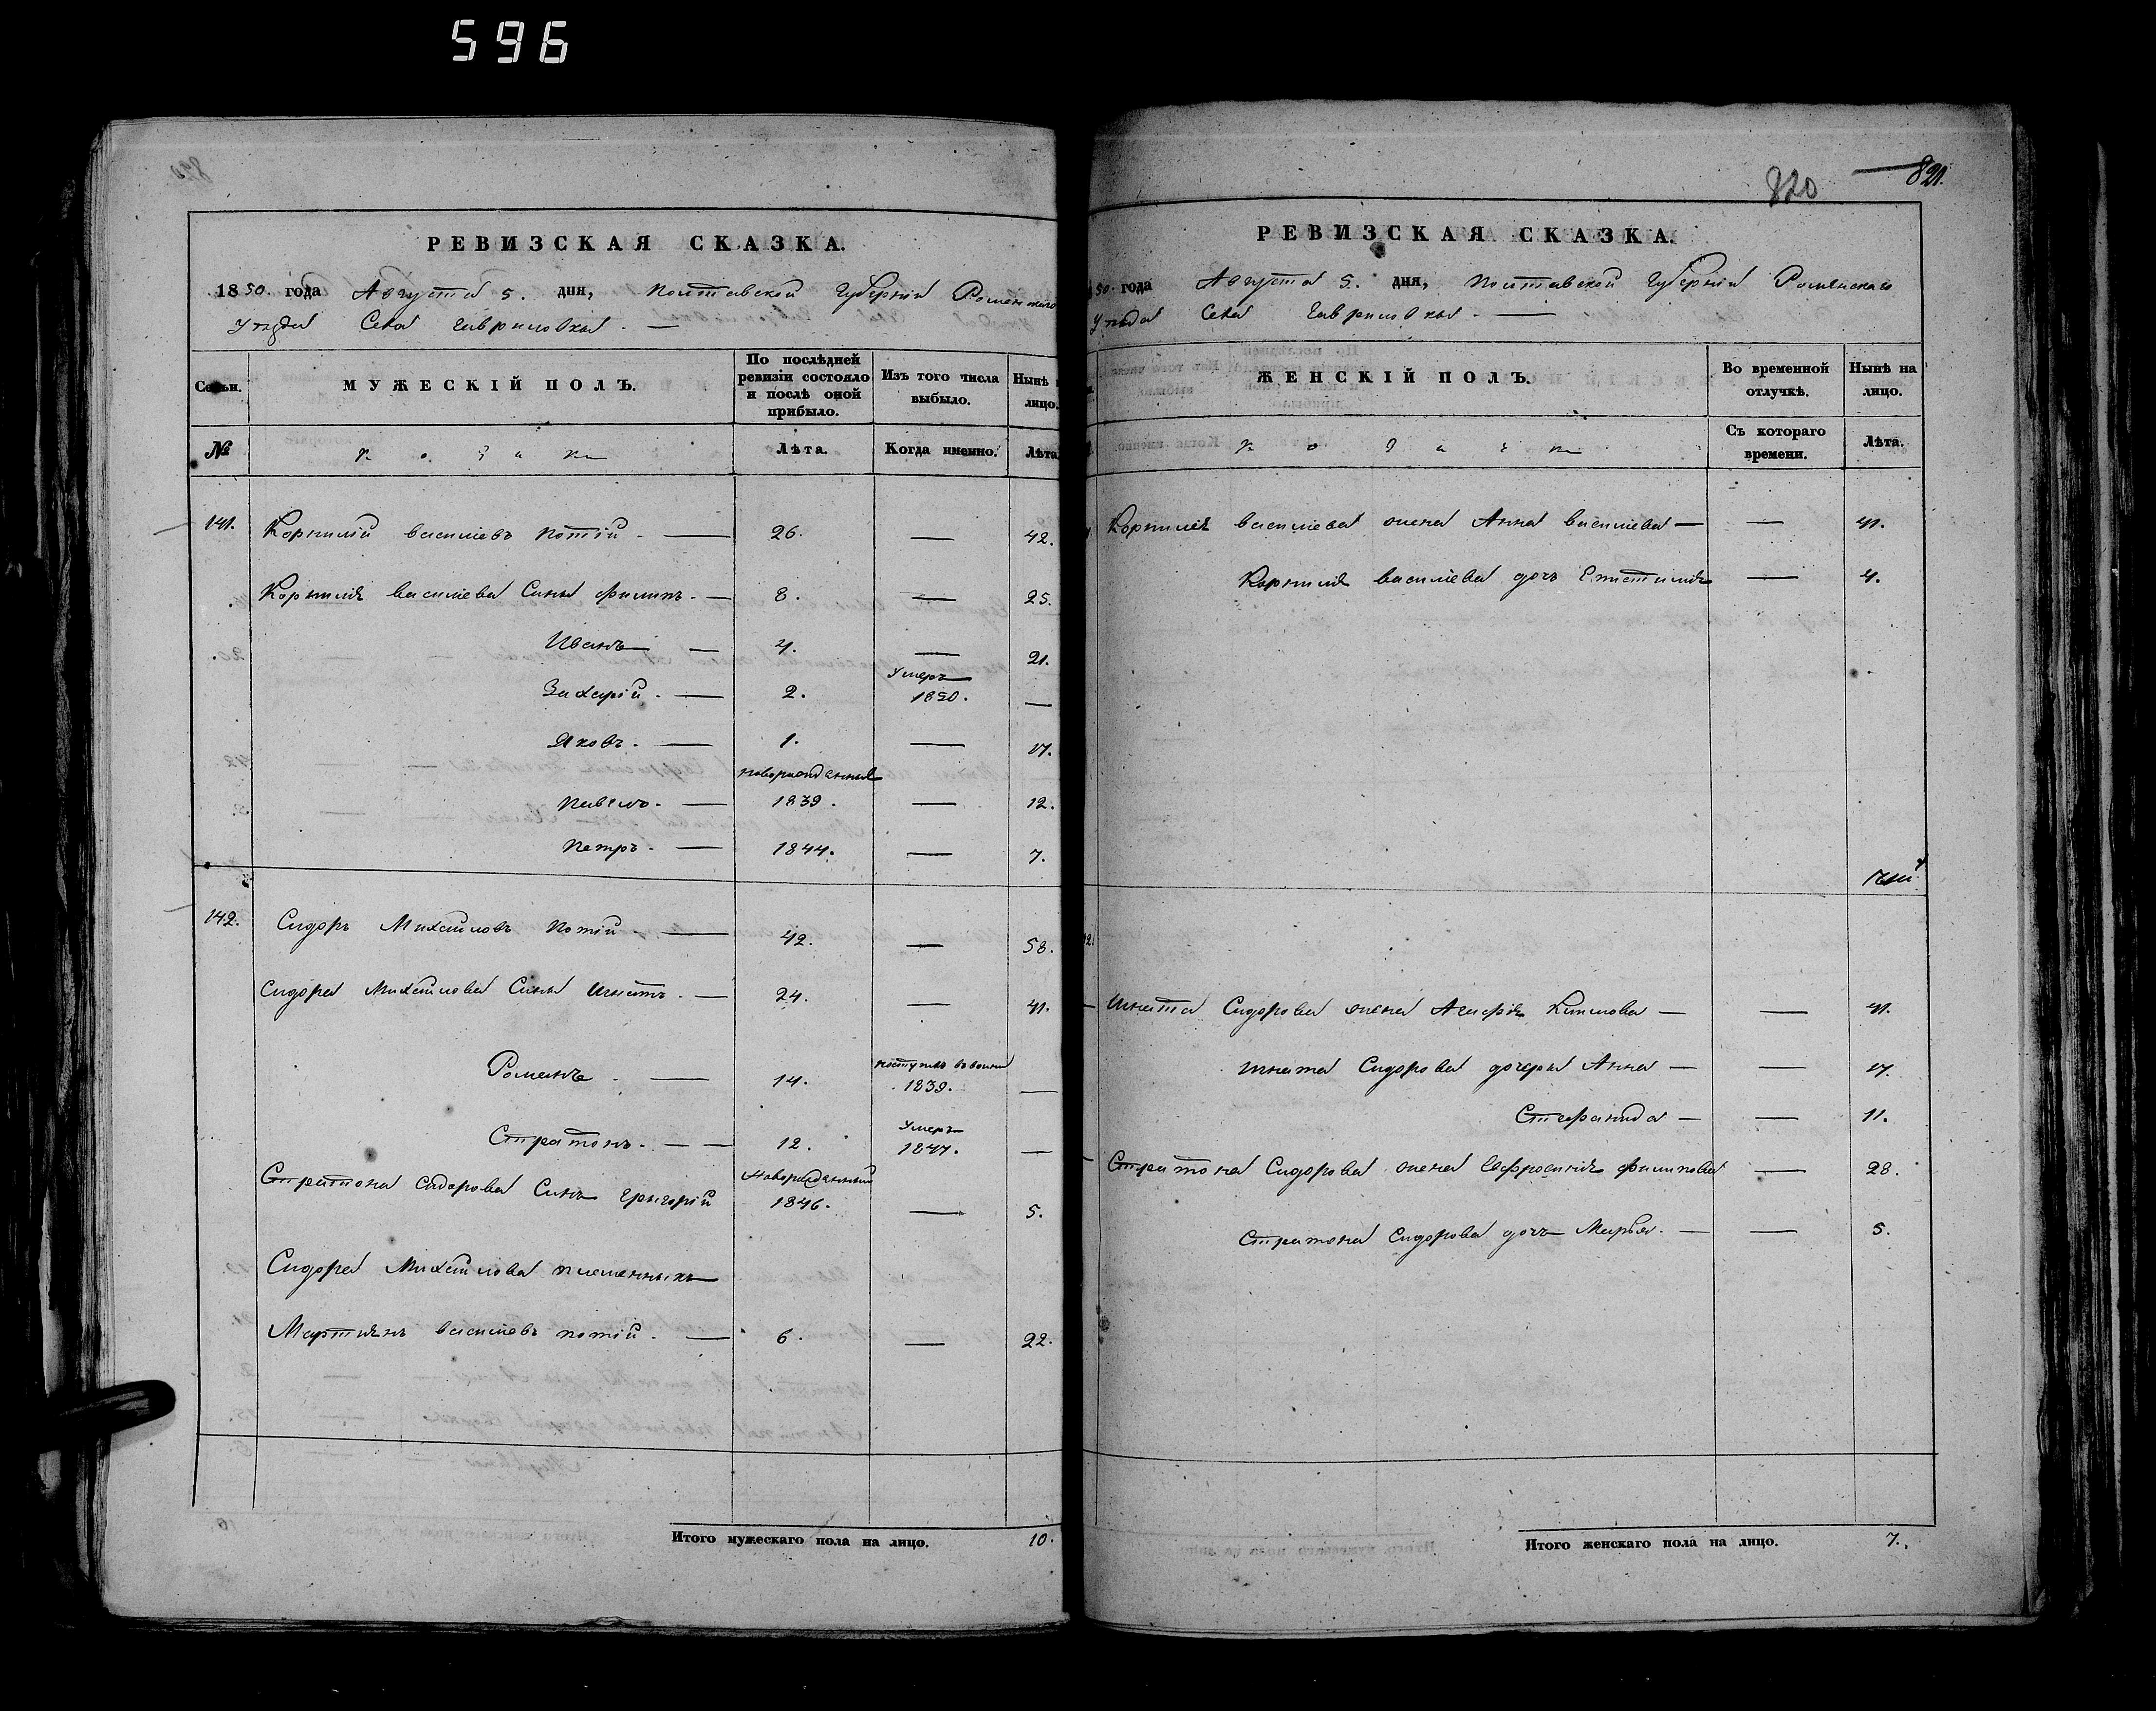 596
РЕВИЗСКАЯ СКАЗКА.
1850. года Августа 5. дня, Полтавской Губерніи Роменскаго
Уезда Села Гавриловки. —
Семьи. МУЖЕСКІЙ ПОЛЪ. По послѣдней ревизіи состояло и послѣ оной прибыло. Изъ того числа выбыло. Нынѣ лицо.
№ Козаки Лѣта. Когда именно. Лѣта
141. Корнилій Васильевъ Потій — 26. — 42.
Корнилія Васильева Сины Филипъ — 8. — 25.
Иванъ — 4. — 21.
Захарій — 2. Умеръ 1850. —
Яковъ — 1. — 17.
Павелъ — новорожденныя 1839. — 12.
Петръ — 1844. — 7.
142. Сидоръ Михайловъ Потій — 42. — 58.
Сидора Михайлова Сины Игнатъ — 24. — 41.
Романъ — 14. поступилъ въ 1839. —
Стратонъ — 12. Умеръ 1847. —
Стратона Сидорова Синъ Григорій новорожденный 1846. — 5.
Сидора Михайлова племенникъ
Мартинъ Васильевъ Потій — 6. — 22.
Итого мужескаго пола на лицо. 10.
820 821.
РЕВИЗСКАЯ СКАЗКА.
50. года Августа 5. дня, Полтавской Губерніи Роменскаго
Уезда Села Гавриловки —
ЖЕНСКІЙ ПОЛЪ. Во временной отлучкѣ. Нынѣ на лицо.
Козачки Съ котораго времени. Лѣта.
Корнилія Васильева жена Анна Васильева — — 41.
Корнилія Васильева дочь Епистимія — 4.
Игната Сидорова жена Агафія — — 41.
Игната Сидорова дочери Анна — — 17.
Стефанида — — 11.
Стратона Сидорова жена Ефросинія Филипова — 28.
Стратона Сидорова дочь Марья — — 5.
Итого женскаго пола на лицо. 7.